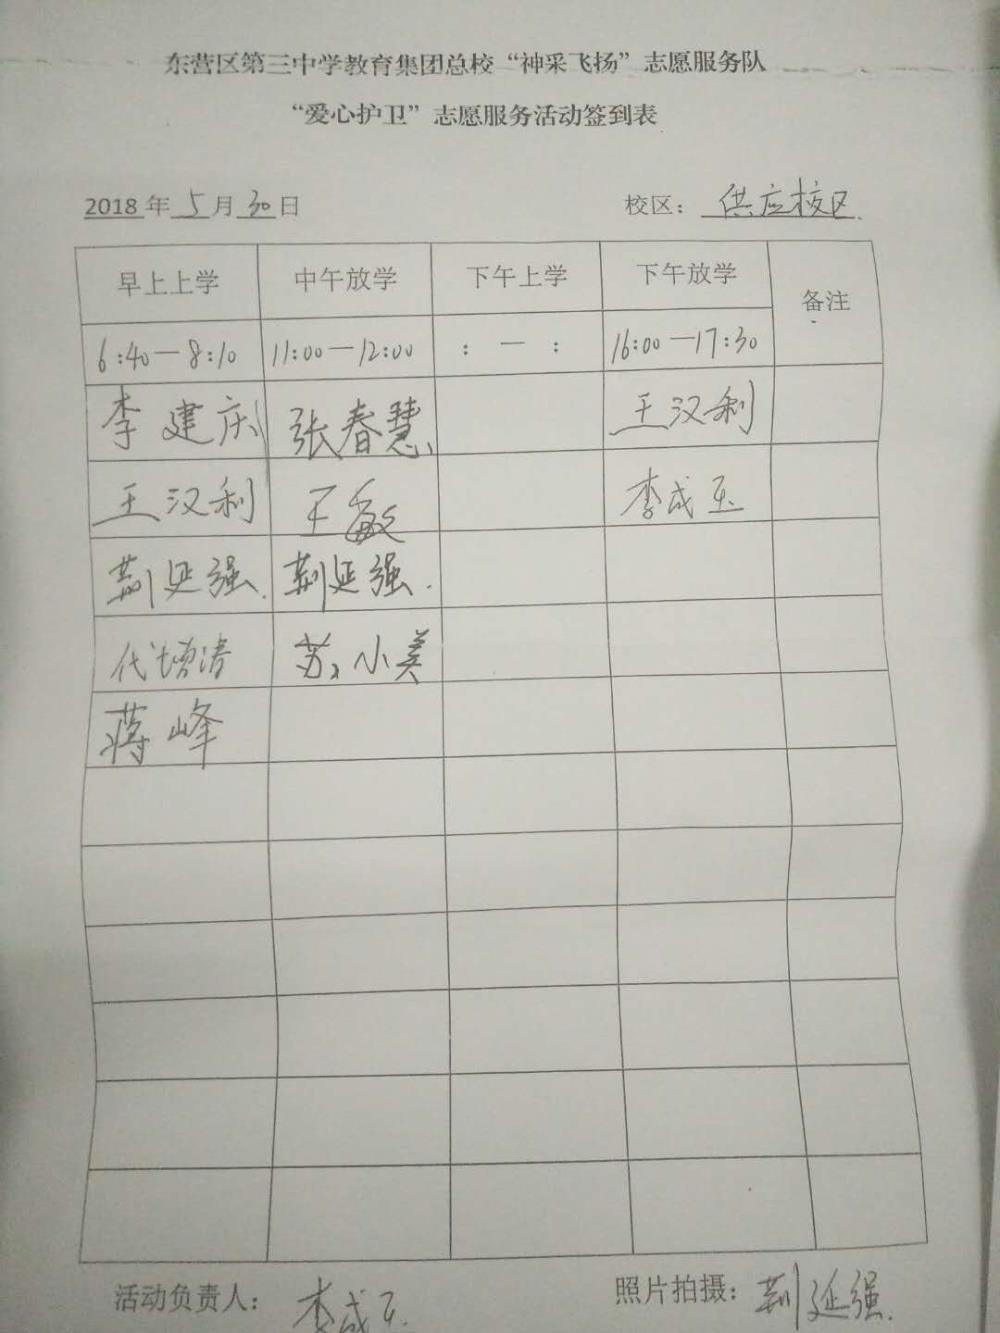 东营区第三中学教育集团总校“神采飞扬”志愿服务队
“爱心护卫”志愿服务活动签到表
2018年 5月30日 校区：供应校区
早上上学 中午放学 下午上学 下午放学 备注
6:40—8:10 11:00—12:00 : — : 16:00—17:30
李建庆 张春慧 王汉利
王汉利 王敏 李成玉
荆延强 荆延强
代增涛 苏小美
蒋峰
活动负责人：李成玉 照片拍摄：荆延强